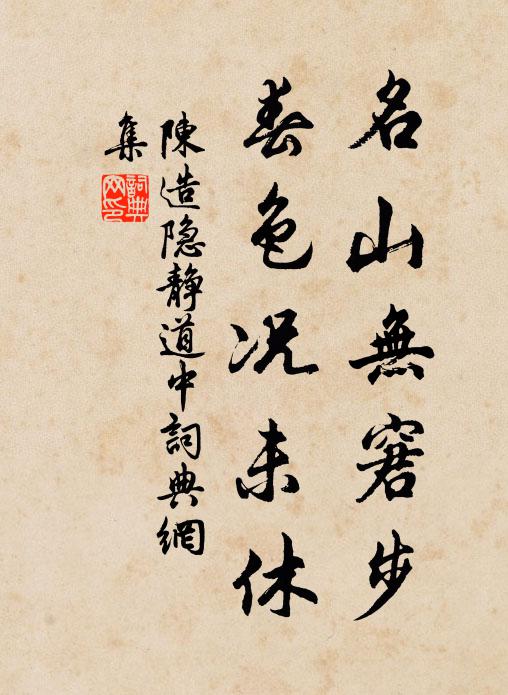 名山無窘步
春色况未休
陳造隐静道中詞典網
集
詞典网印